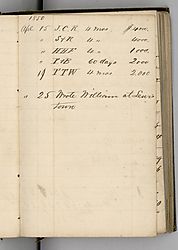 1850
Apl. 15 J.C.R. 4 mos $400.
" S&R 4 " 400.
" HHF 4 " 1000.
" I&E 60 days 2000
19 TTW 4 mos 2.000
" 25 Wrote William at Lewis
town